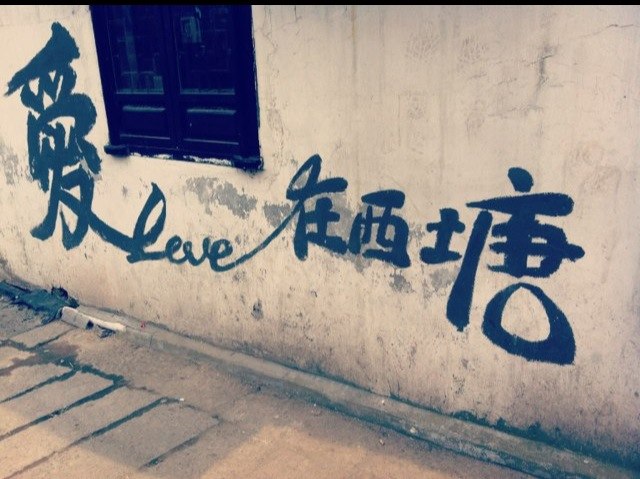 愛love在西塘